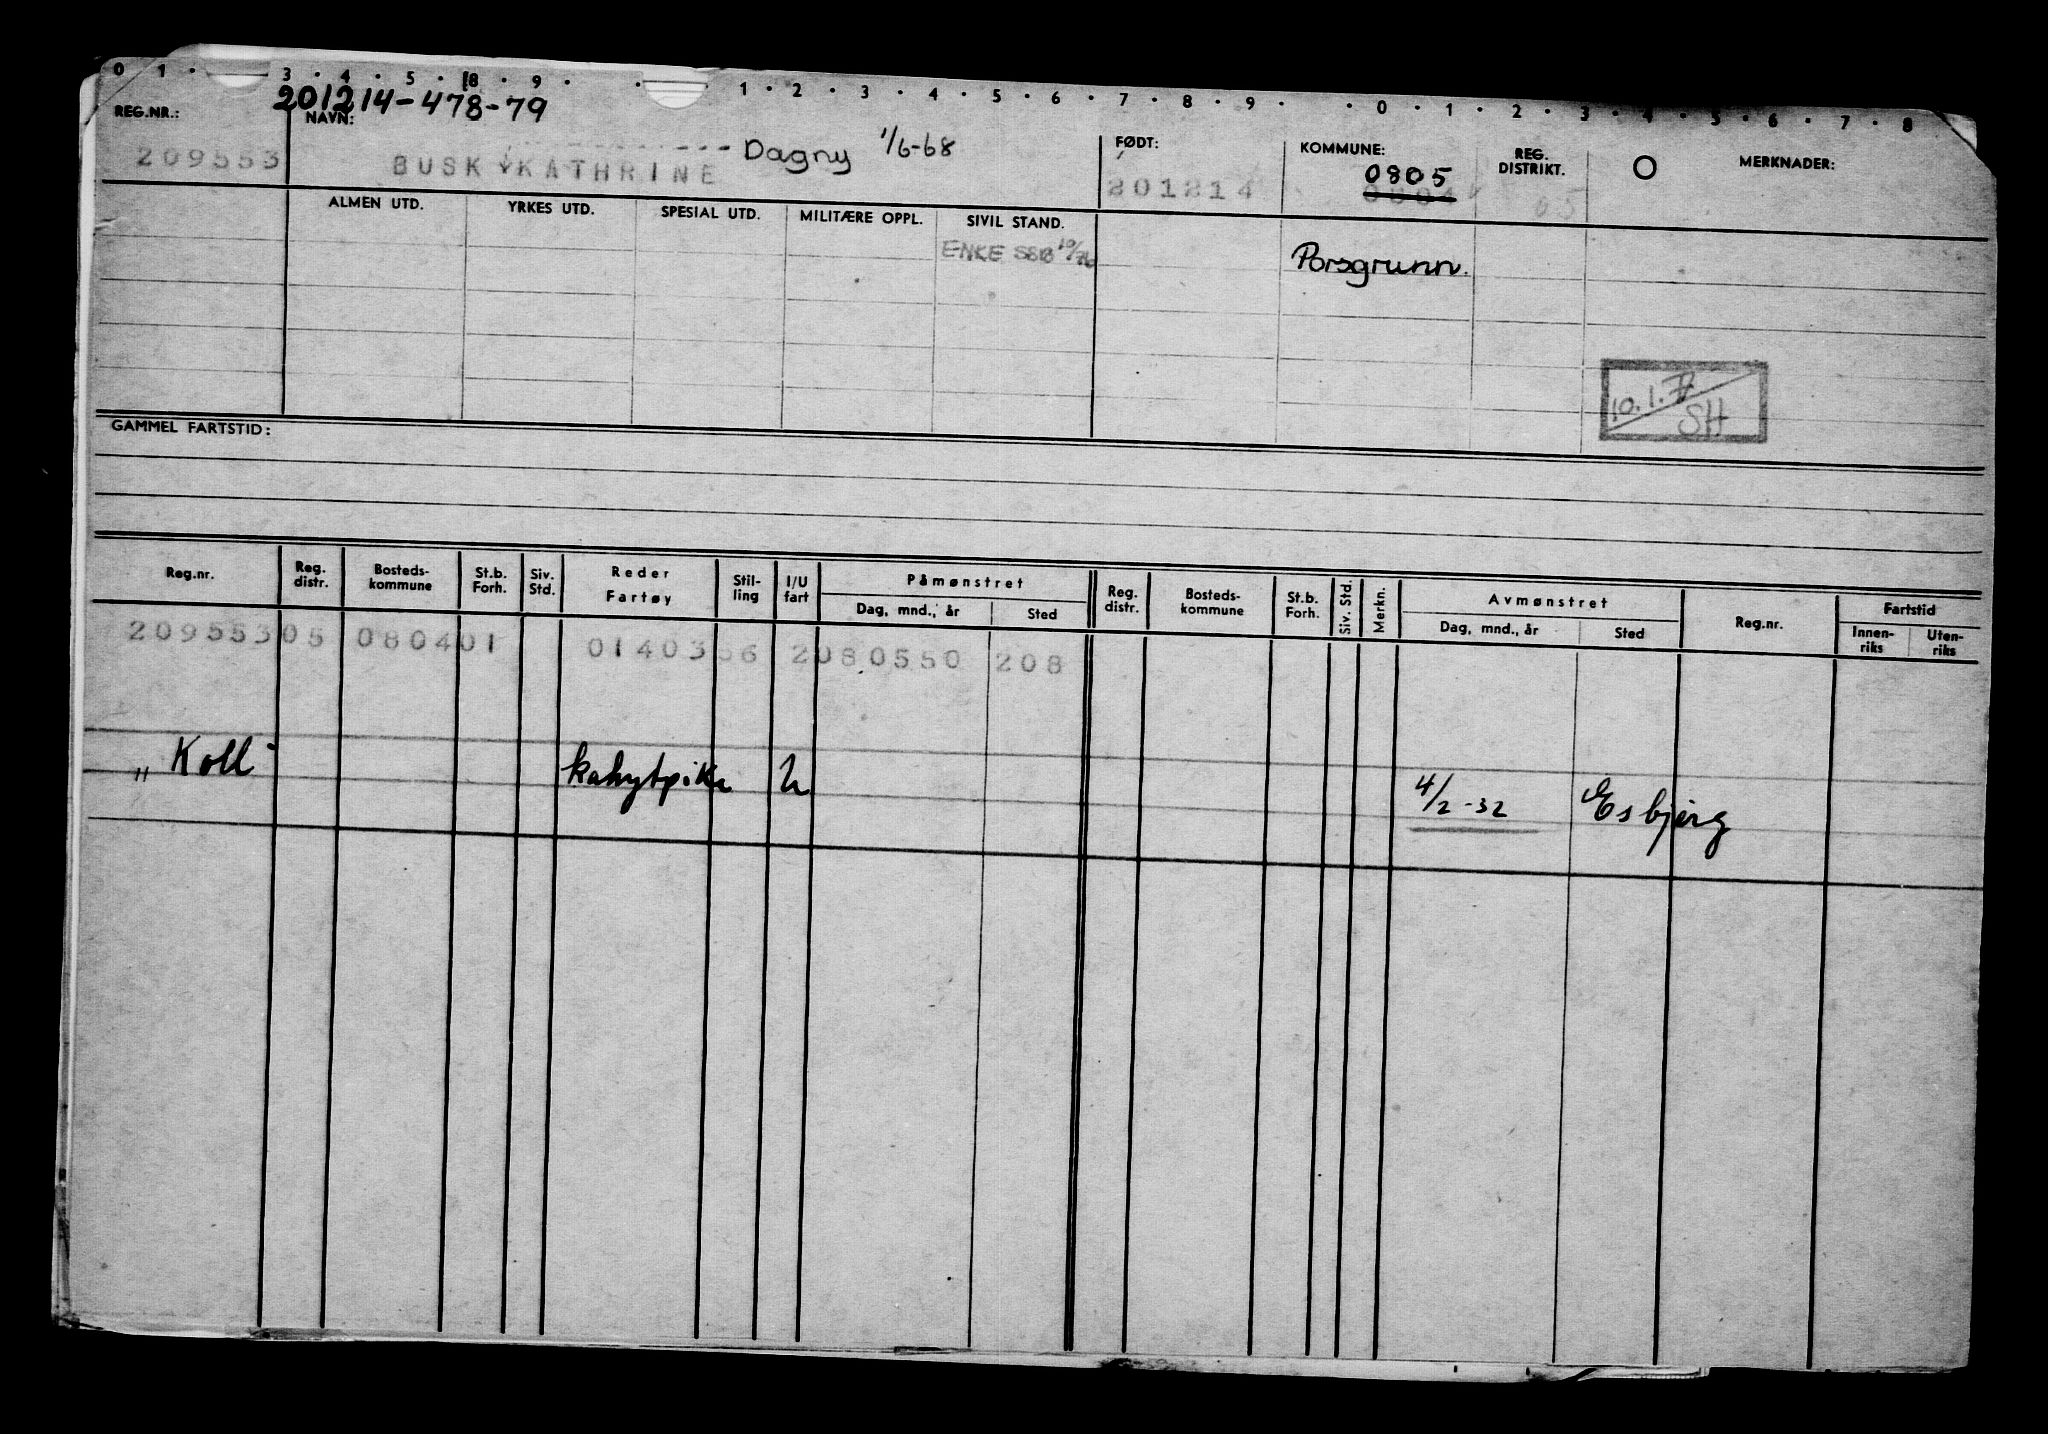 0 1 · 3 · 4 · 5 · 8 · 9 · · 1 · 2 · 3 · 4 · 5 · 6 · 7 · 8 · 9 · · 0 · 1 · 2 · 3 · 4 · 5 · 6 · 7 · 8
201214-478-79
REG.NR.: NAVN: FØDT: KOMMUNE: REG. DISTRIKT. O MERKNADER:
Dagny 1/6-68
0805
209553 BUSK KATHRINE 201214 0804 05
ALMEN UTD. YRKES UTD. SPESIAL UTD. MILITÆRE OPPL. SIVIL STAND.
ENKE SSB 10/76 Porsgrunn.
10.1.
SH
GAMMEL FARTSTID:
Reg.nr. Reg. distr. Bosteds- kommune St.b. Forh. Siv. Std. Reder Fartøy Stil- ling I/U fart Påmønstret Reg. distr. Bosteds- kommune St.b. Forh. Siv. Std. Merkn. Avmønstret Reg.nr. Fartstid
Dag, mnd., år Sted Dag, mnd., år Sted Innen- riks Uten- riks
209553 05 0804 01 01403 56 2 080550 208
"Koll" kahytpike U 4/2-52 Esbjerg